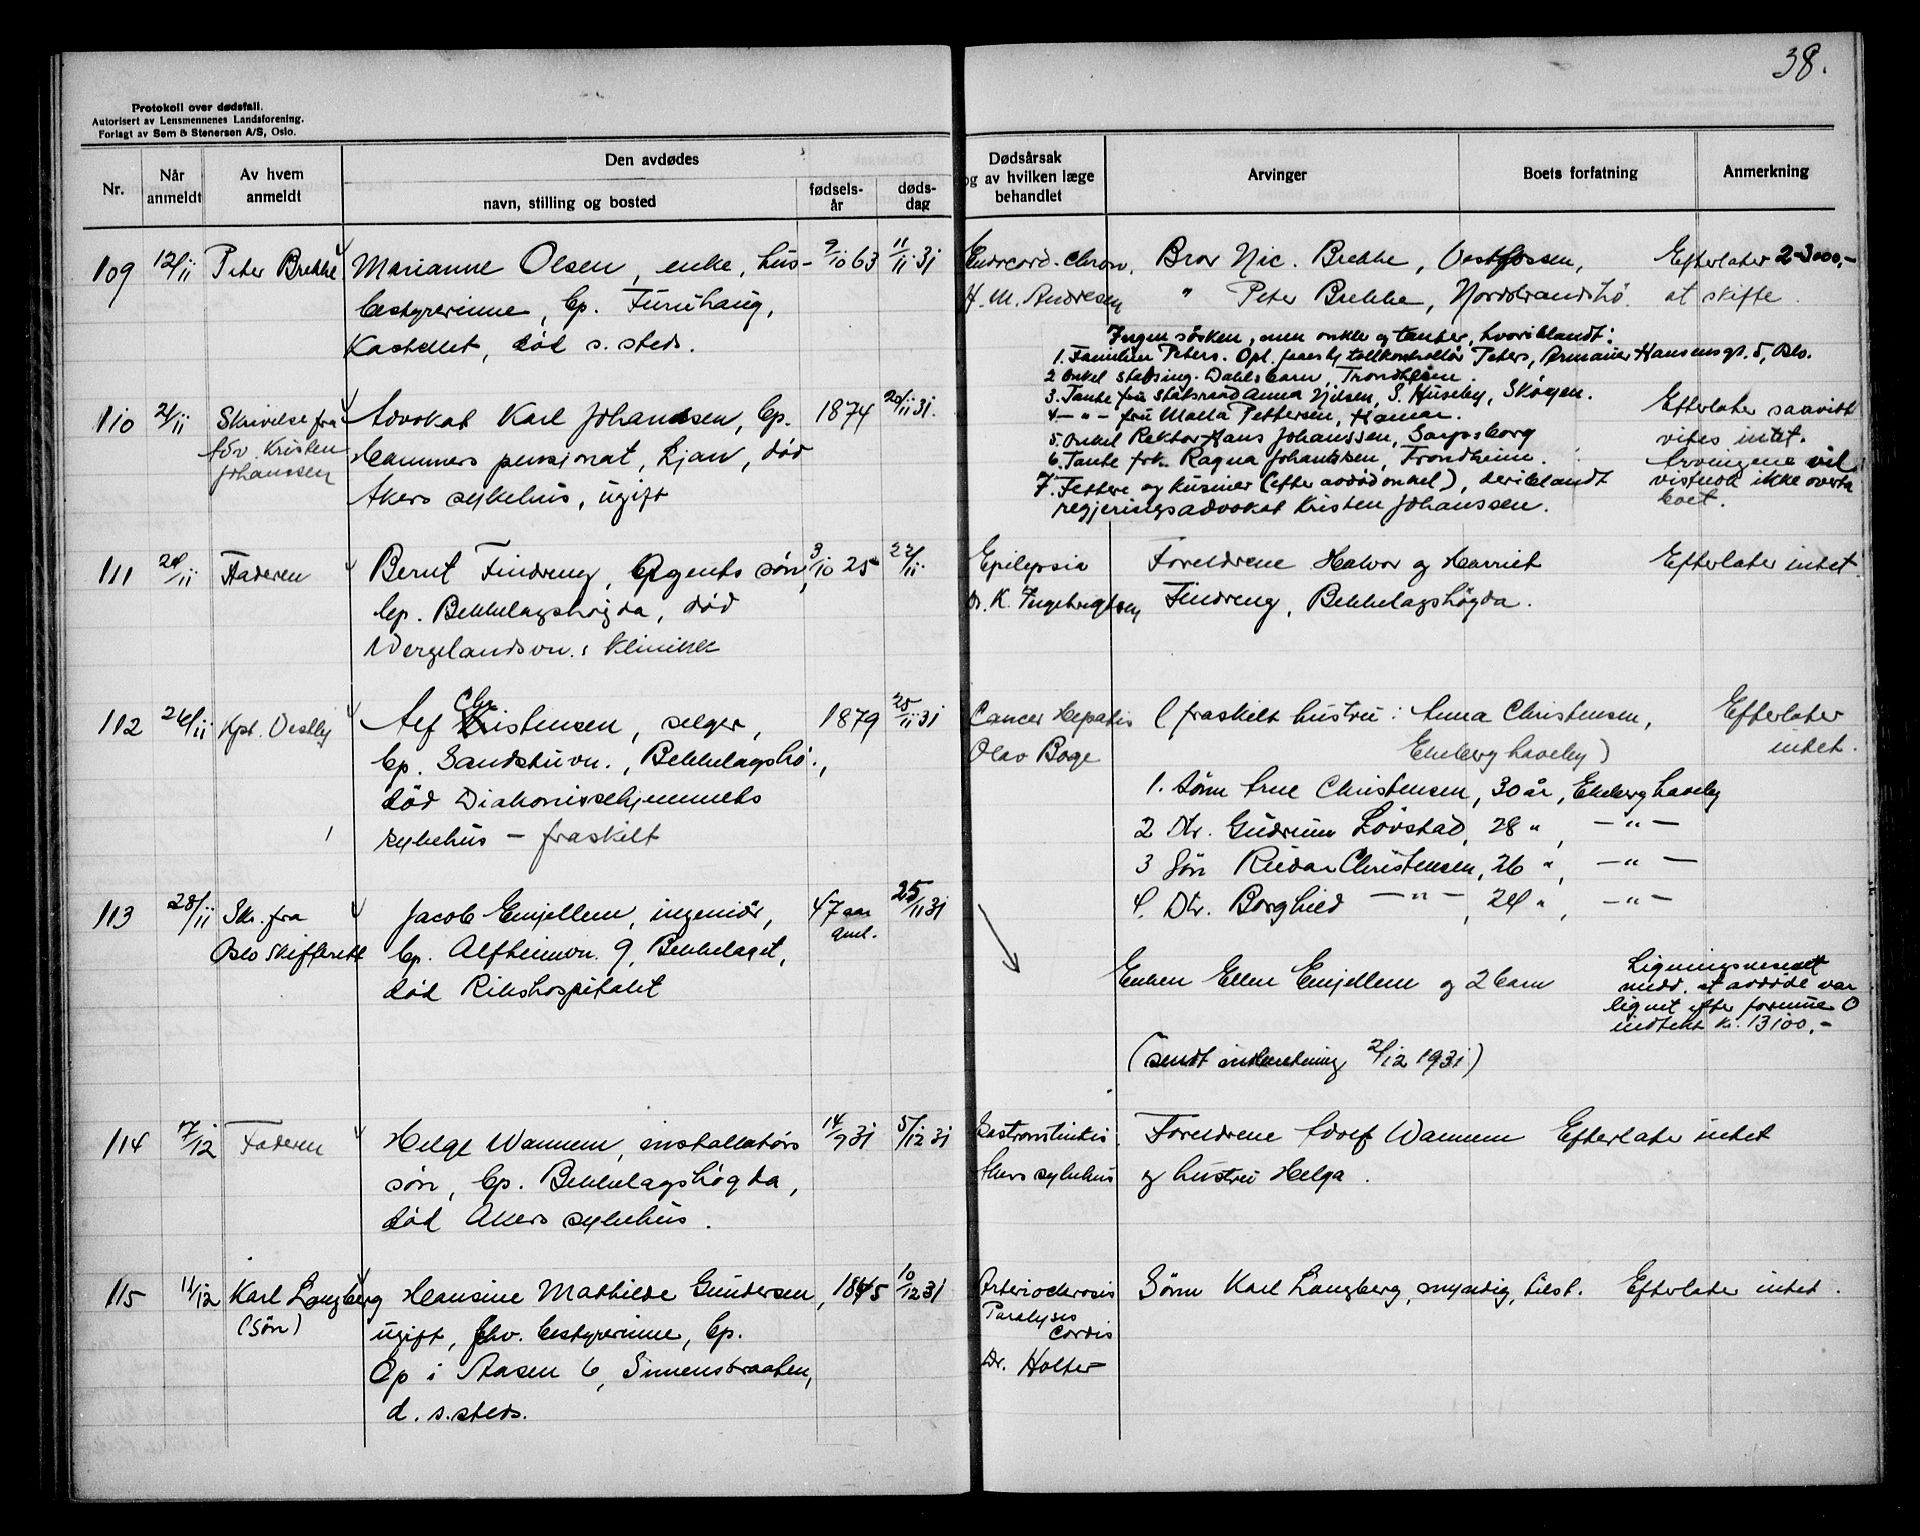 38.
Protokoll over dødsfall.
Autorisert av Lensmennenes Landsforening.
Forlagt av Sem & Stenersen A/S, Oslo.
Nr.
Når anmeldt
Av hvem anmeldt
Den avdødes
navn, stilling og bosted
fødsels-år
døds-dag
Dødsårsak
og av hvilken læge
behandlet
Arvinger
Boets forfatning
Anmerkning
109 12/11 Peter Brekke Marianne Olsen, enke, hus- 9/10 63 11/11 31 Endocard. chron. Bror Nic. Brekke, Vestfossen, Efterlater 2-3000,-
bestyrerinne, bp. Furuhaug, H. M. Andresen " Peter Brekke, Nordstrandshö. at skifte.
Kastellet, död s. steds.
Ingen sösken, men onkler og tanter, hvoriblandt:
1. Familien Peters. Opl. faaes hj tollkontrollör Peters, Armauer Hansensgt. 5, Oslo.
2 Onkel stabsing. Dahls barn, Trondheim.
3. Tante fru statsraad Anna Nilsen, S. Huseby, Sköyen.
4 - " - fru Marta Pettersen, Hamar.
5. Onkel Rektor Hans Johanssen, Sarpsborg
6. Tante frk. Ragna Johanssen, Trondheim.
7. Fettere og kusiner (efter avdöd onkel), deriblandt
regjeringsadvokat Kristen Johanssen.
110 21/11 Skrivelse fra Advokat Karl Johanssen, bp. 1874 20/11 31. Efterlater saavidt
adv. Kristen Hammers pensjonat, Ljan, död vites intet.
Johanssen Akers sykehus, ugift Arvingene vil
vistnok ikke overta
boet.
111 24/11 Faderen Bernt Findreng, Agents sön, 3/10 25 22/11 Epilepsia Foreldrene Halvor og Harriet Efterlater intet.
bp. Bekkelagshögda, död Dr. K. Ingebrigtsen Findreng, Bekkelagshögda.
Wergelandsvn.s Klinikk
112 26/11 Kpt. Vestby Alf Christensen, selger, 1879 25/11 31 Cancer Hepatis (fraskilt hustru: Anna Christensen, Efterlater
bp. Sandstuvn., Bekkelagshö., Olav Boge Ekeberg haveby) intet.
död Diakonissehjemmets 1. Sönn Arne Christensen, 30 år, Ekeberg haveby
sykehus - fraskilt 2 Dtr. Gudrun Lövstad, 28 ", - " -
3 Sön Reidar Christensen, 26 ", - " -
4. Dtr. Borghild - " -, 24 ", - " -
113 28/11 Skr. fra Jacob Emjellem, ingeniör, 47 aar gml. 25/11 31
Oslo Skifterett bp. Alfheimvn. 9, Bekkelaget,
död Rikshospitalet Enken Ellen Emjellem og 2 barn Ligningsvesenet
medd. at avdöde var
lignet efter formue 0
indtekt kr. 13100,-
(sendt innberetning 2/12 1931)
114 7/12 Faderen Helge Wannem, installatörs 14/9 31 5/12 31 Foreldrene Adolf Wannem Efterlater intet
sön, bp. Bekkelagshögda, Akers sykehus og hustru Helga.
död Akers sykehus.
115 11/12 Karl Langberg Hansine Mathilde Gundersen, 1845 10/12 31 Arteriosclerosis Sönn Karl Langberg, myndig, tilst. Efterlater intet.
(Sön) ugift, fhv. bestyrerinne, bp. Paralysis Cordis
Op i Aasen 6, Simensbraaten, Dr. Holter
d. s. steds.